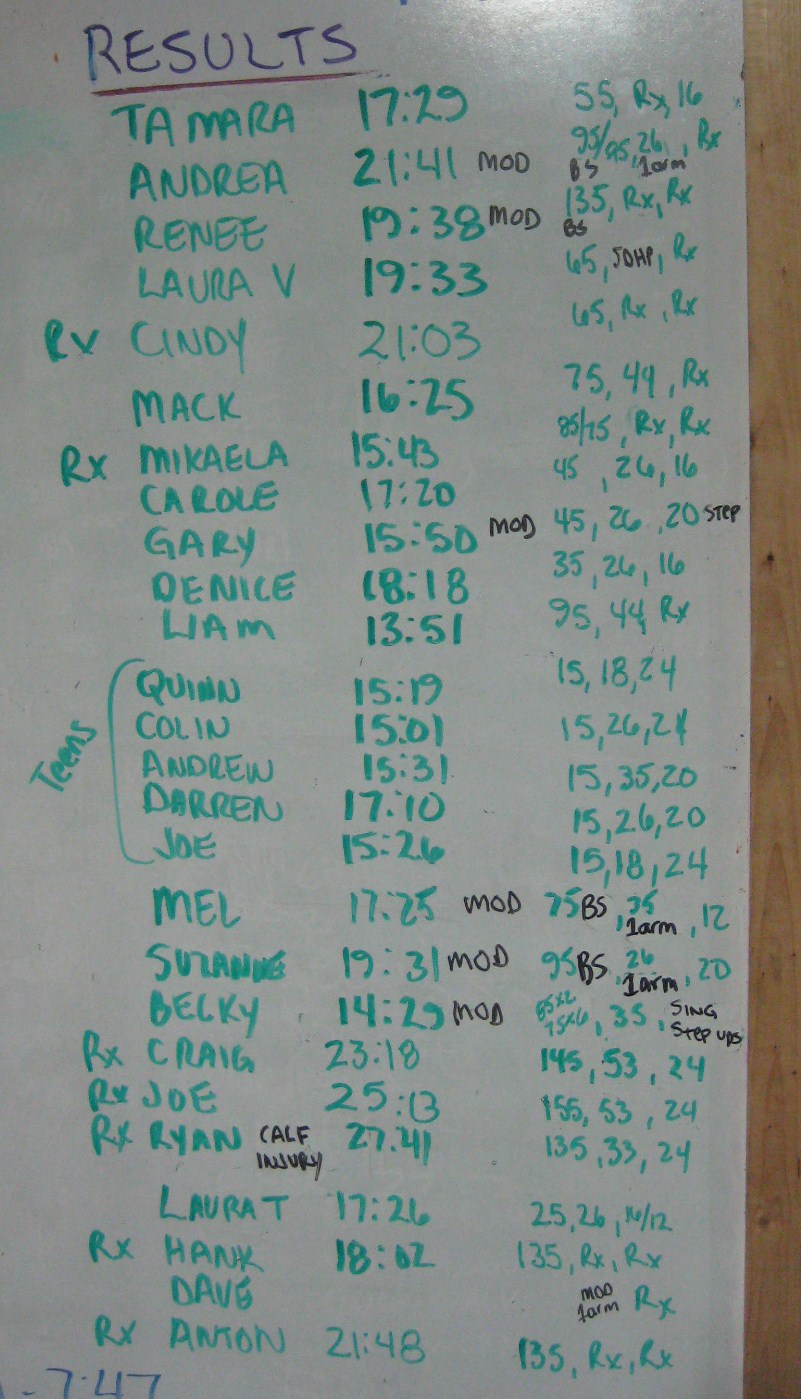 RESULTS
TAMARA 17:29 55, Rx, 16
ANDREA 21:41 MOD 95/95, 26, Rx
BS 1arm
RENEE 19:38 MOD 135, Rx, Rx
BS
LAURA V 19:33 65, SDHP, Rx
Rx CINDY 21:03 65, Rx, Rx
MACK 16:25 75, 44, Rx
Rx MIKAELA 15:43 85/75, Rx, Rx
CAROLE 17:20 45, 26, 16
GARY 15:50 MOD 45, 26, 20 STEP
DENICE 18:18 35, 26, 16
LIAM 13:51 95, 44, Rx
Teens
QUINN 15:19 15, 18, 24
COLIN 15:01 15, 26, 24
ANDREW 15:31 15, 35, 20
DARREN 17:10 15, 26, 20
JOE 15:26 15, 18, 24
MEL 17:25 MOD 75 BS, 35, 12
1arm
SUZANNE 19:31 MOD 95 BS, 26, 20
1arm
BECKY 14:29 MOD 85x2 75x6, 35, SING
STEP UPS
Rx CRAIG 23:18 145, 53, 24
Rx JOE 25:13 155, 53, 24
Rx RYAN CALF INJURY 27.41 135, 33, 24
LAURA T 17:26 25, 26, 16/12
Rx HANK 18:02 135, Rx, Rx
DAVE MOD 1arm Rx
Rx ANTON 21:48 135, Rx, Rx
- 7:47